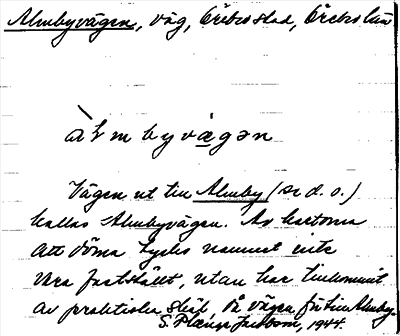 Almbyvägen, väg, Örebro stad, Örebro län
àḷmbyvägən
Vägen ut till Almby (se d. o.)
kallas Almbyvägen. Av kartorna
att döma tycks namnet inte
vara fastställt, utan har tillkommit
av praktiska skäl, då vägen för till Almby.
S. 1944.